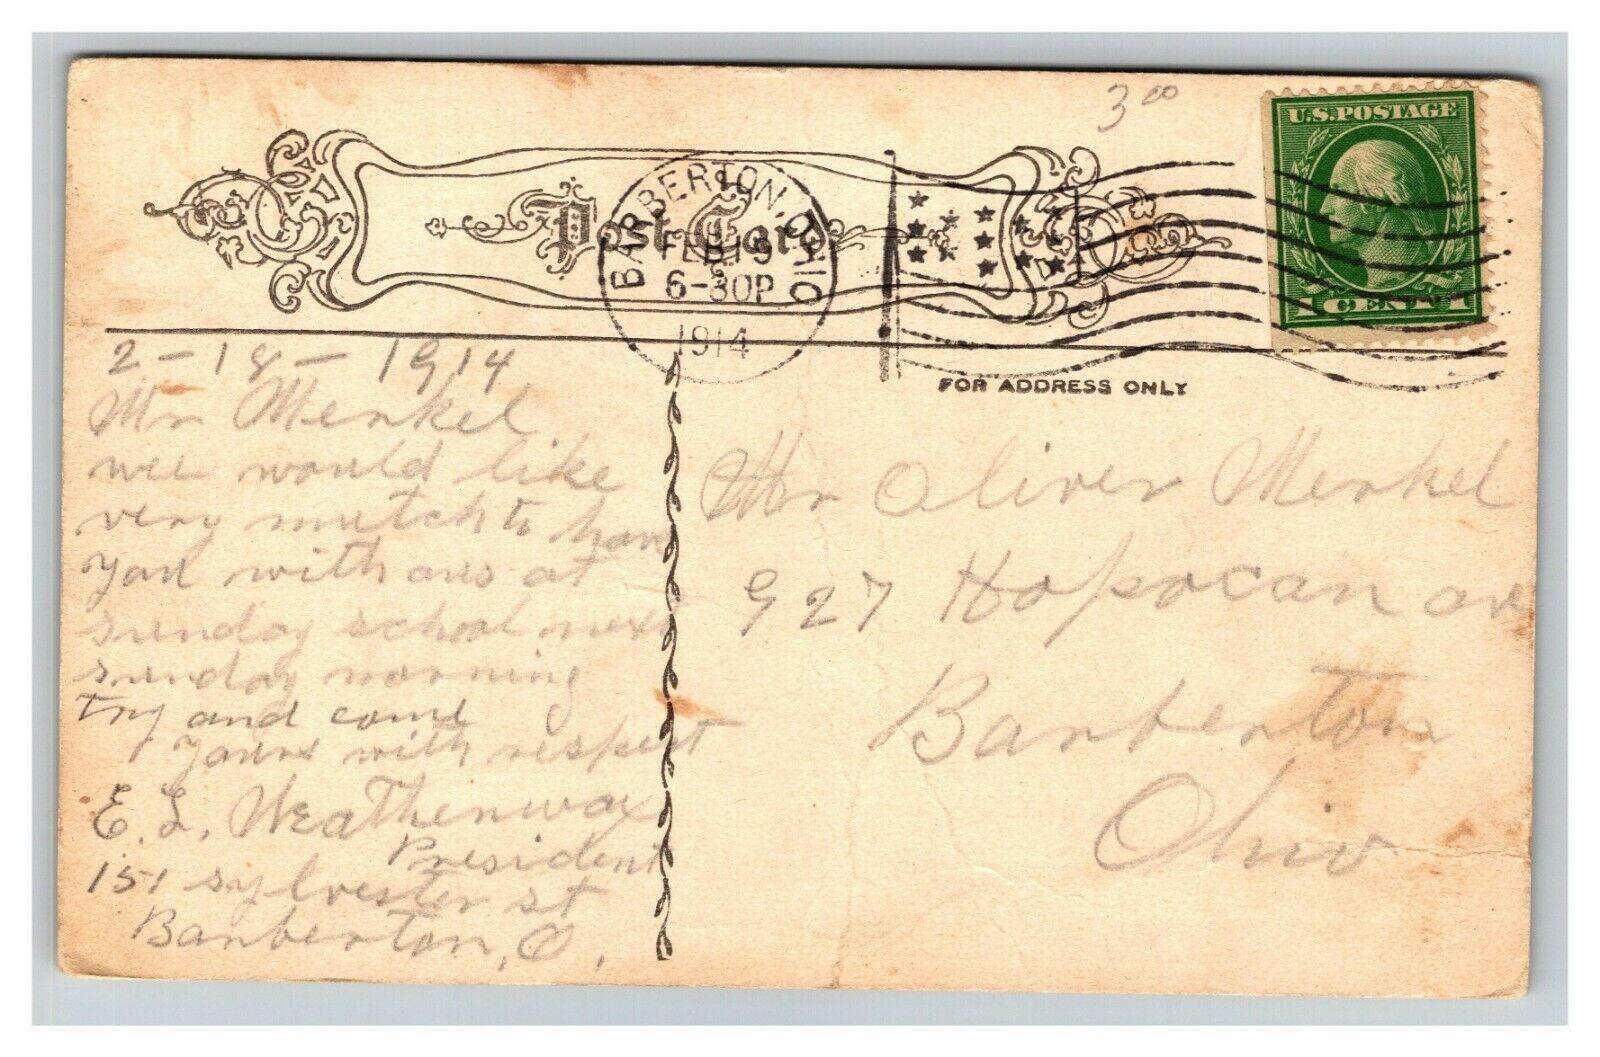 3 00
U.S. POSTAGE
1 CENT 1
Post Card
BARBERTON OHIO
FEB 19
6-30P
1914
FOR ADDRESS ONLY
2-18-1914
Mr Menkel
wee would like
very mutch to have
you with ous at
sunday school next
sunday morning
try and come
yours with respect
E. L. Weathenwax
President
151 sylvester st
Banberton, O,
Mr Oliver Menkel
927 Hopocan av
Banberton
Ohio